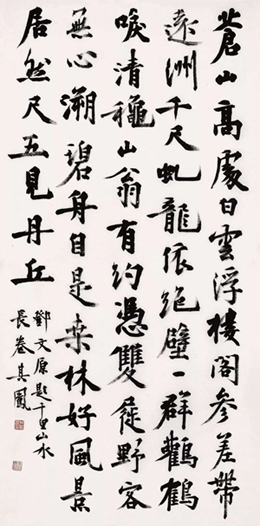 蒼山高處白雲浮樓閣參差帶
遠洲千尺虬龍依絶壁一群鸛鶴
唳清穐山翁有約憑雙屐野客
無心溯碧舟自是桒林好風景
居然尺五見丹丘
鄧文原題千里山水
長卷其國